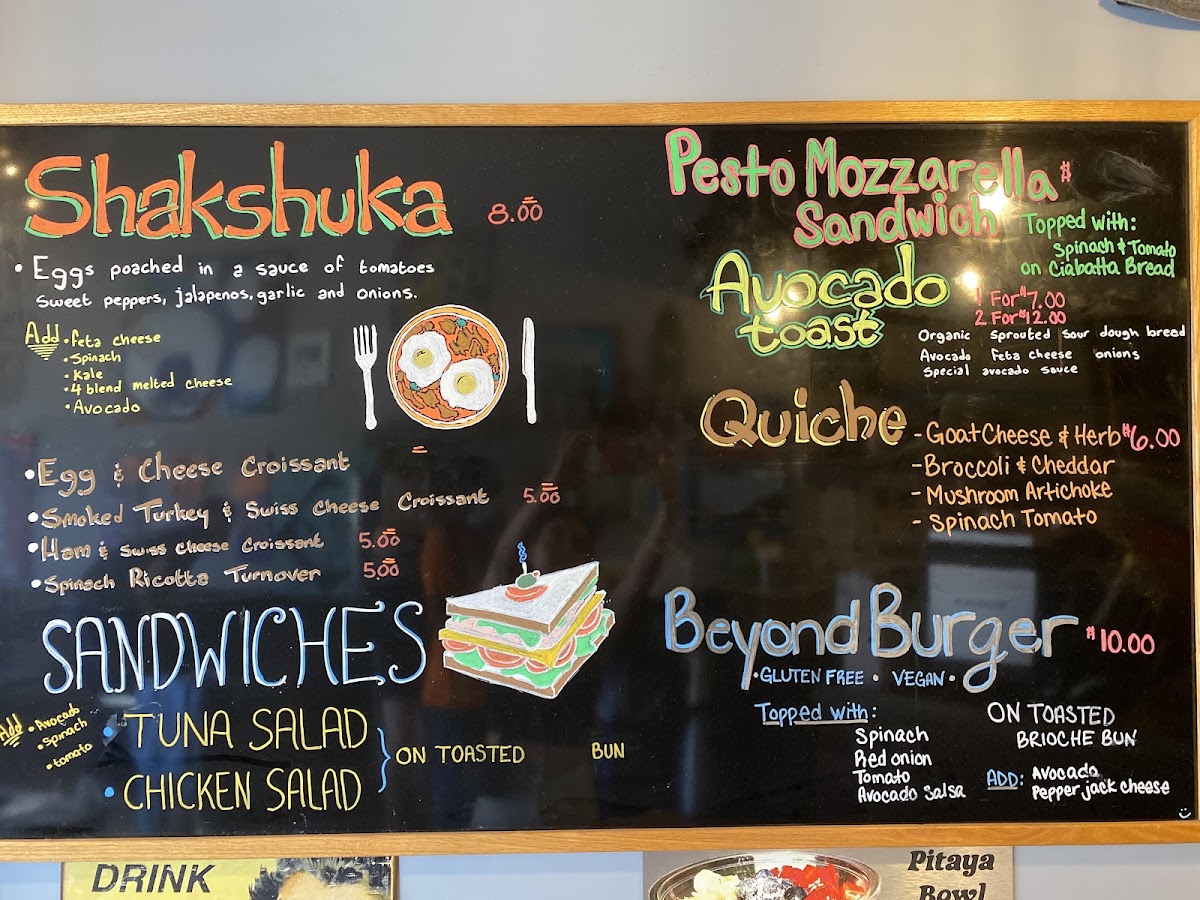 Shakshuka 8.00
• Eggs poached in a sauce of tomatoes
sweet peppers, jalapenos, garlic and onions.
Add • Feta cheese
• Spinach
• Kale
• 4 blend melted cheese
• Avocado
• Egg & Cheese Croissant
• Smoked Turkey & Swiss Cheese Croissant 5.00
• Ham & Swiss Cheese Croissant 5.00
• Spinach Ricotta Turnover 5.00
SANDWICHES
Add • Avocado
• Spinach
• tomato
• TUNA SALAD
• CHICKEN SALAD
ON TOASTED BUN
Pesto Mozzarella $
Sandwich
Topped with:
Spinach & Tomato
on Ciabatta Bread
Avocado
toast
1 For $7.00
2 For $12.00
Organic Sprouted sour dough bread
Avocado Feta cheese onions
Special avocado sauce
Quiche
- Goat Cheese & Herb $6.00
- Broccoli & Cheddar
- Mushroom Artichoke
- Spinach Tomato
Beyond Burger $10.00
• GLUTEN FREE • VEGAN •
Topped with:
Spinach
Red onion
Tomato
Avocado Salsa
ON TOASTED
BRIOCHE BUN
ADD: Avocado
Pepper jack cheese
DRINK
Pitaya
Bowl